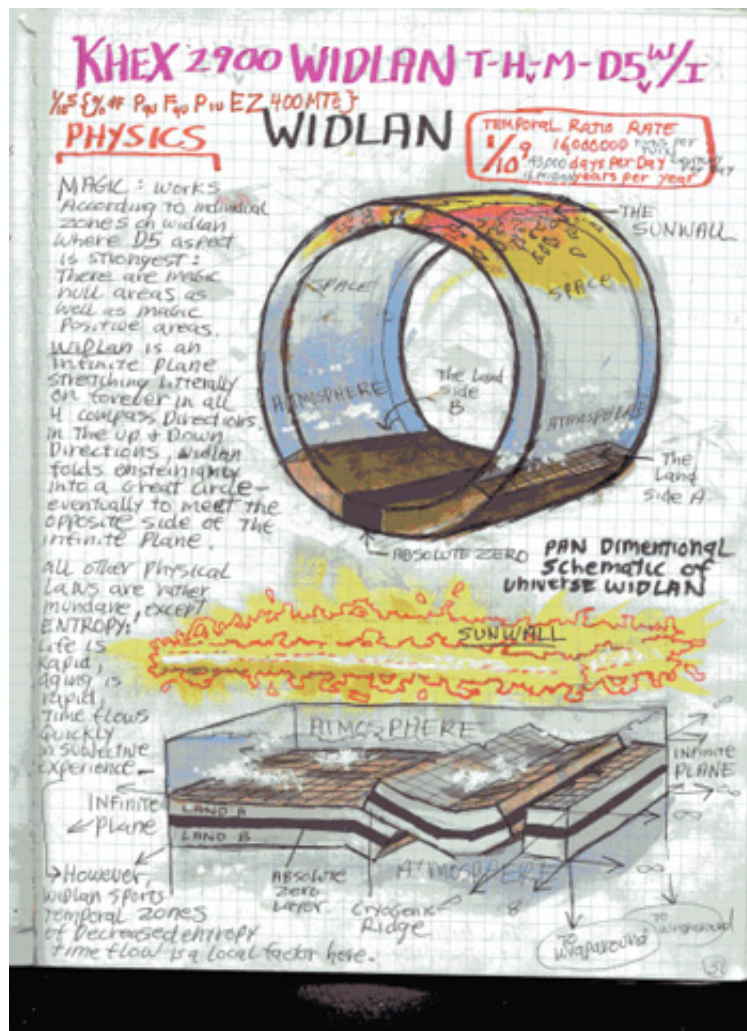 KHEX 2900 WIDLAN T-H-M-D5 W/I
400 MTC}
PHYSICS
WIDLAN
TEMPORAL RATIO RATE
1/10 9 16,000,000
days per Day
years per year
MAGIC: WORKS
According to individual
zones on widlan
where D5 aspect
is strongest:
There are magic
null areas as
well as magic
Positive areas.
WIDLAN is an
infinite plane
stretching litterally
on forever in all
4 compass Directions.
in The up + Down
Directions, widlan
folds einsteinianly
into a Great circle-
eventually to meet the
opposite side of The
infinite Plane.
All other Physical
LAWS are rather
mundane, except
ENTROPY:
Life is
Rapid,
aging is
rapid,
Time flows
Quickly
in subjective
experience-
However,
widlan sports
temporal zones
of Decreased entropy
time flow is a local factor here.
THE
SUNWALL
SPACE
SPACE
ATMOSPHERE
The Land
side
B
ATMOSPHERE
The
Land
side A
ABSOLUTE ZERO
PAN DIMENTIONAL
SCHEMATIC of
UNIVERSE WIDLAN
SUNWALL
ATMOSPHERE
INFINITE
PLANE
INFINITE
Plane
LAND A
LAND B
ATMOSPHERE
ABSOLUTE
ZERO
LAYER
Cryogenic
Ridge
∞
∞
∞
∞
8
TO
Wraparound
TO
Wraparound